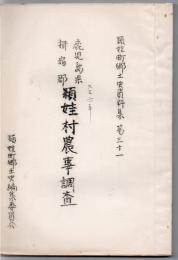 頴娃町郷土史資料集 第三十一
鹿児島県
揖宿郡
頴娃村農事調査
頴娃町郷土史編集委員会